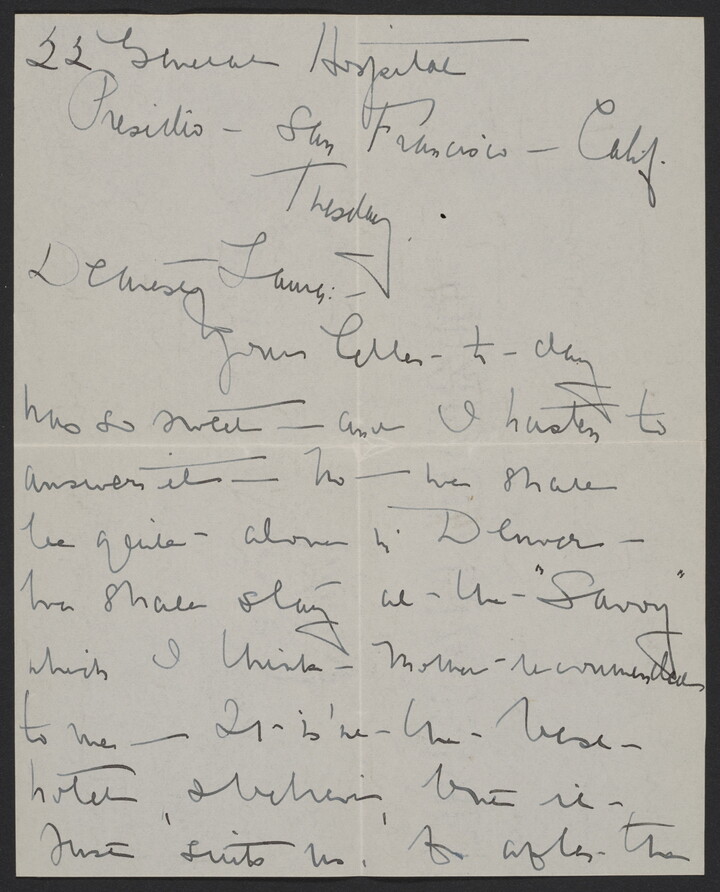 U.S. General Hospital
Presidio – San Francisco – Calif.
Tuesday.
Dearest Laura: –
Your letter to-day
was so sweet – and I hasten to
answer it – No – we shall
be quite alone in Denver –
We shall stay at the "Savoy"
which I think Mother recommended
to me – It isn't the best
hotel, I believe, but it
just 'suits us.' For after the